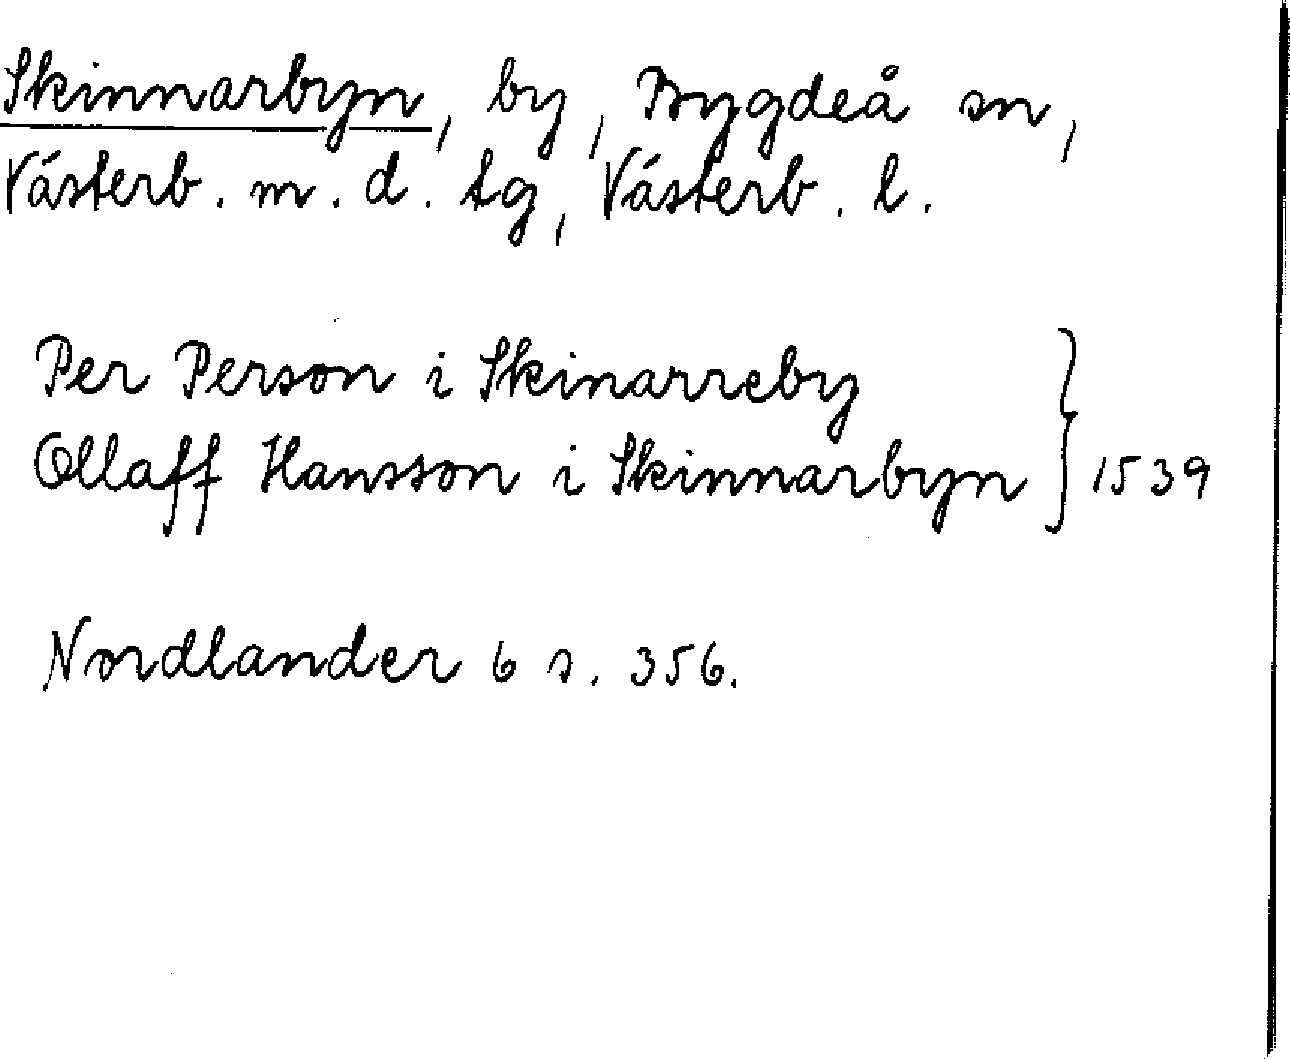 Skinnarbyn, by, Bygdeå sn,
Västerb. m. d. tg, Västerb. l.
Per Person i Skinarreby
Ollaff Hansson i Skinnarbyn } 1539
Nordlander 6 s. 356.